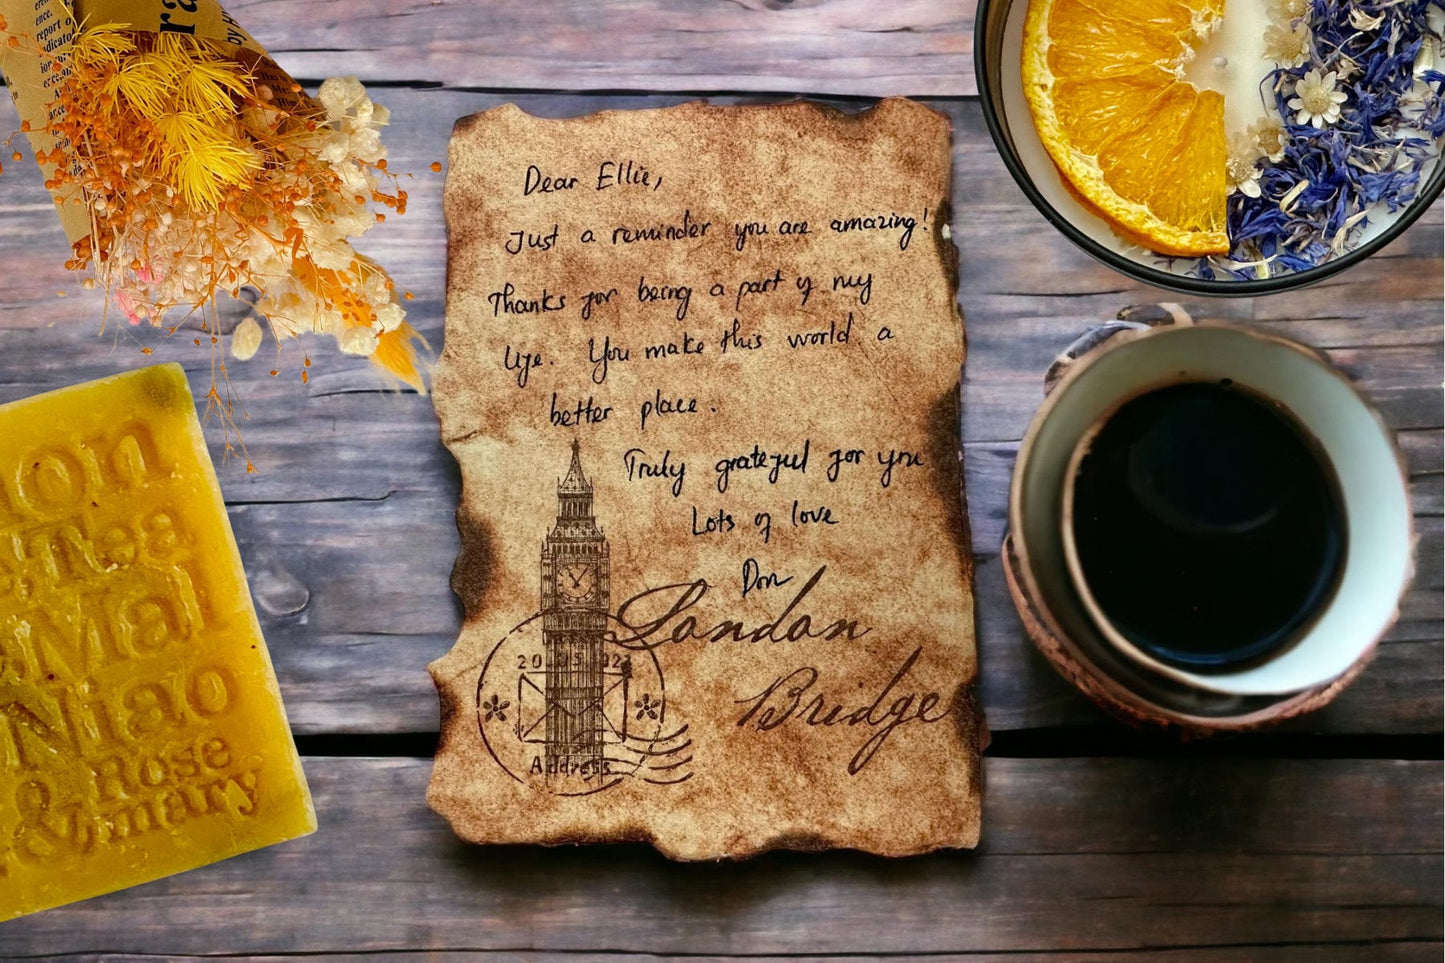 Dear Ellie,
Just a reminder you are amazing!
Thanks for being a part of my
life. You make this world a
better place.
Truly grateful for you
Lots of love
Don
London
Bridge
20 05 02
Address
Tea
Mal
Niao
& Rose
mary
report of